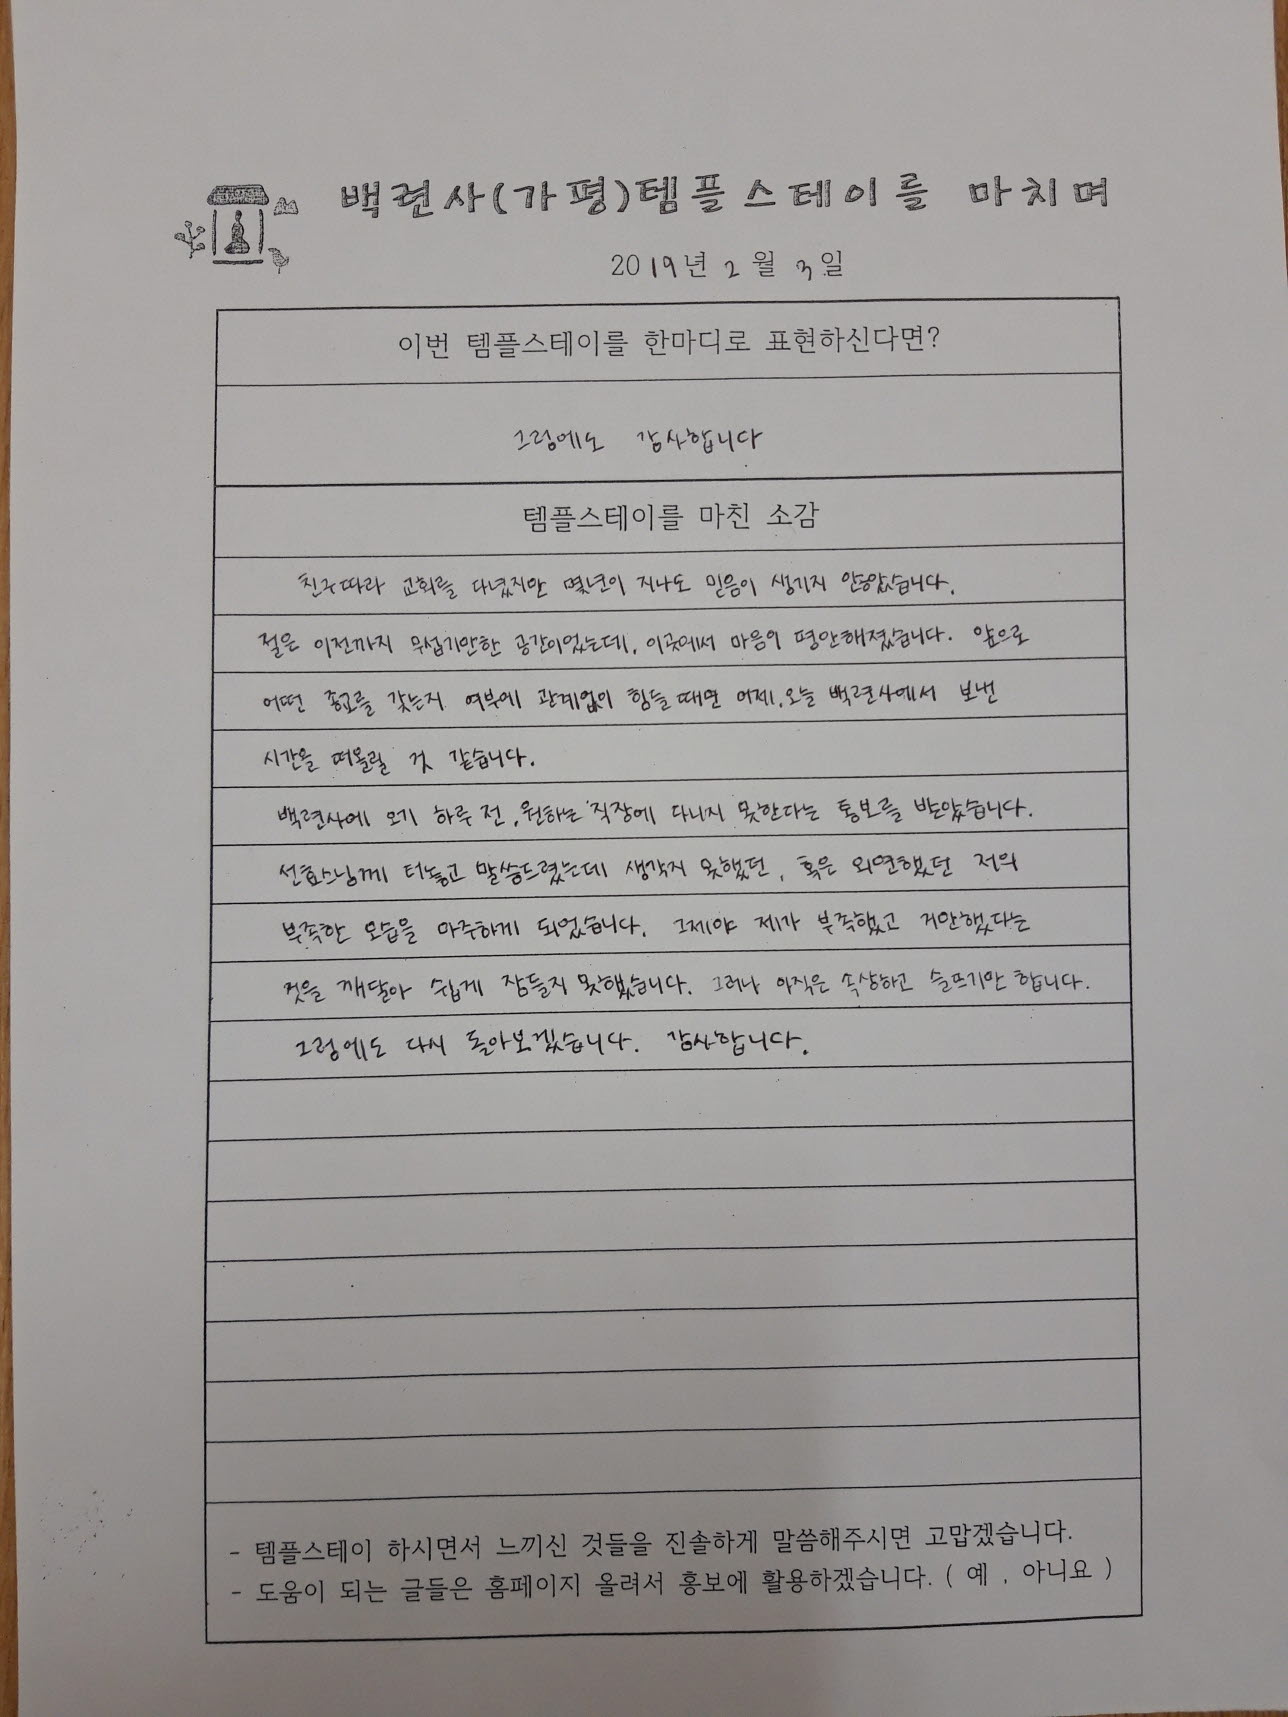 백련사(가평)템플스테이를 마치며
2019년 2월 3일
이번 템플스테이를 한마디로 표현하신다면?
그럼에도 감사합니다
템플스테이를 마친 소감
친구따라 교회를 다녔지만 몇년이 지나도 믿음이 생기지 않았습니다.
절은 이전까지 무섭기만한 공간이었는데, 이곳에서 마음이 평안해졌습니다. 앞으로
어떤 종교를 갖는지 여부에 관계없이 힘들 때면 어제, 오늘 백련사에서 보낸
시간을 떠올릴 것 같습니다.
백련사에 오기 하루 전, 원하는 직장에 다니지 못한다는 통보를 받았습니다.
선효스님께 터놓고 말씀드렸는데 생각지 못했던, 혹은 외면했던 저의
부족한 모습을 마주하게 되었습니다. 그제야 제가 부족했고 거만했다는
것을 깨달아 쉽게 잠들지 못했습니다. 그러나 아직은 속상하고 슬프기만 합니다.
그럼에도 다시 돌아보겠습니다. 감사합니다.
- 템플스테이 하시면서 느끼신 것들을 진솔하게 말씀해주시면 고맙겠습니다.
- 도움이 되는 글들은 홈페이지 올려서 홍보에 활용하겠습니다. ( 예 , 아니요 )